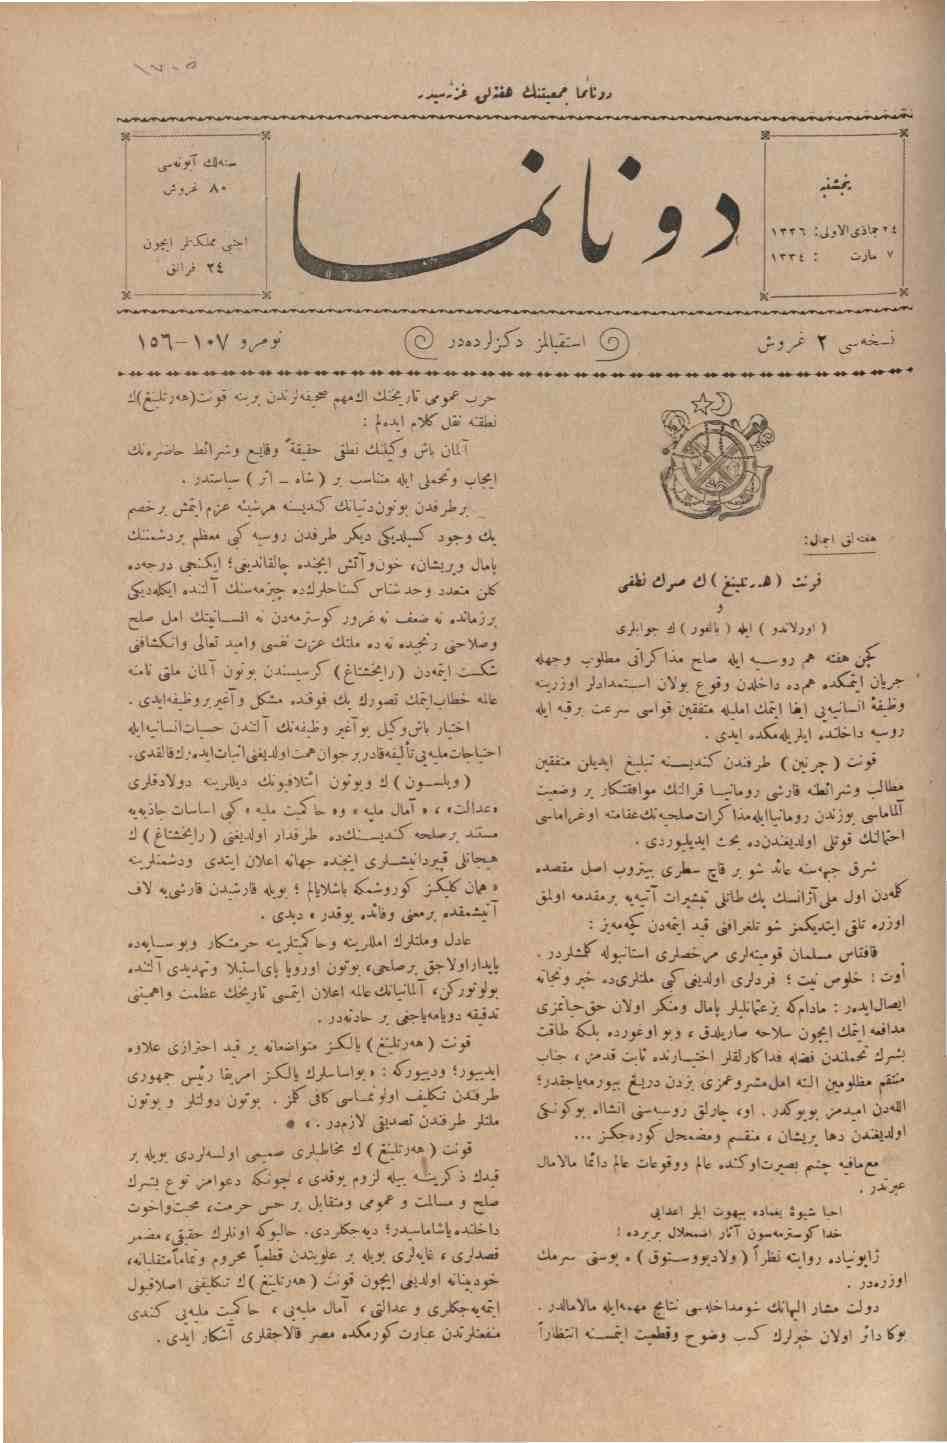 دونانما جمعیتنك هفته‌لق غزته‌سیدر
پنجشنبه
٢٤ جماذی‌الاولی: ١٣٣٦
٧ مارت : ١٣٣٤
دونانما
سنه‌لك آبونه‌سی
٨٠ غروش
اجنبی مملكتلر ایچون
٢٤ فرانق
نسخه‌سی ٢ غروش
استقبالمز دكزلرده‌در
نومرو ١٠٧–١٥٦
هفته‌لق اجمال:
قونت (هه‌رتلینغ) ك صوك نطقی
و
( اورلاندو ) ایله ( بالفور ) ك جوابلری
كچن هفته هم روسیه ایله صلح مذاكراتی مطلوب وجهله
جریان ایتمكده هم‌ده داخلدن وقوع بولان استمدادلر اوزرینه
وظیفهٔ انسانیه‌یی ایفا ایتمك املیله متفقین قواسی سرعت برقیه ایله
روسیه داخلنده ایلریله‌مكده ایدی .
قونت (چرنین) طرفندن كندیسنه تبلیغ ایدیلن متفقین
مطالب وشرائطنه قارشی رومانیا قرالنك موافقتكار بر وضعیت
آلماماسی یوزندن رومانیا ایله مذاكرات صلحیه‌نك عقامته اوغراماسی
احتمالنك قوتلی اولدیغندن‌ده بحث ایدیلیوردی .
شرق جبهه‌سنه عائد شو بر قاچ سطری بیتروب اصل مقصده
كلمه‌دن اول ملی آژانسك پك طاتلی تبشیرات آتیه‌یه برمقدمه اولمق
اوزره تلقی ایتدیكمز شو تلغرافنی قید ایتمه‌دن كچه‌میز :
قافقاس مسلمان قومیته‌لری مرخصلری استانبوله كلمشلردر .
أوت : خلوص نیت ؛ فردلری اولدیغی كبی ملتلری‌ده خیر ونجاته
ایصال ایده‌ر : مادامكه بز عثمانلیلر پامال ومنكر اولان حق حیاتمزی
مدافعه ایتمك ایچون سلاحه صاریلدق ، وبو اوغورده بلكه طاقت
بشرك تحملندن فضله فداكارلقلر اختیارنده ثابت قدمز ، جناب
منتقم مظلومین البته امل مشروعمزی بزدن دریغ بیورمه‌یاجقدر؛
اللهدن امیدمز بویوكدر . او، چارلق روسیه‌سنی انشاالله بوكونكی
اولدیغندن دها پریشان ، منقسم ومضمحل كوره‌جكز ...
مع‌مافیه چشم بصیرت اوكنده عالم ووقوعات عالم دائما مالامال
عبرتدر .
احبا شیوهٔ یغماده مبهوت ایلر اعدایی
خدا كوسترمه‌سون آثار اضمحلال بریرده !
ژاپونیاده روایته نظراً ( ولادیووستوق ) ه پوستی سرمك
اوزره‌در .
دولت مشار الیهانك شو مداخله‌سی نتایج مهمه ایله مالامالدر .
بوكا دائر اولان خبرلرك كسب وضوح وقطعیت ایتمسنه انتظاراً
حرب عمومی تاریخنك اك مهم صحیفه‌لرندن برینه قونت (هه‌رتلینغ)ك
نطقنه نقل كلام ایده‌لم :
آلمان باش وكیلنك نطقی حقیقةً وقایع وشرائط حاضره‌نك
ایجاب وتحملی ایله متناسب بر ( شاه – اثر ) سیاستدر .
برطرفدن بوتون دنیانك كندیسنه هرشیئه عزم ایتمش برخصم
یك وجود كسیلدیكی دیكر طرفدن روسیه كبی معظم بردشمننك
پامال وپریشان، خون و آتش ایچنده چالقاندیغی؛ ایكنجی درجه‌ده
كلن متعدد وحدشناس كستاحلرك‌ده چیزمه‌سنك آلتنده ایكله‌دیكی
برزمانده نه ضعف نه غرور كوسترمه‌دن نه انسانیتك امل صلح
وصلاحنی رنجیده نه‌ده ملتك عزت نفسی وامید تعالی وانكشافنی
شكست ایتمه‌دن (رایخشتاغ) كرسیسندن بوتون آلمان ملتی نامنه
عالمه خطاب ایتمك تصورك پك فوقنده مشكل و آغیر بر وظیفه ایدی .
اختیار باش‌وكیل بو آغیر وظیفه‌نك آلتندن حسیات انسانیه ایله
احتیاجات ملیه‌یی تألیفه قادر بر جوان همت اولدیغنی اثبات ایده‌رك قالقدی.
(ویلسون) ك وبوتون ائتلافیونك دیللرینه دولادقلری
«عدالت» ، « آمال ملیه » وه حاكمیت ملیه » كبی اساسات جاذبه‌یه
مستند برصلحه كندیسنك‌ده طرفدار اولدیغنی (رایخشتاغ) ك
هیجانلی قیپردانیشلری ایچنده جهانه اعلان ایتدی ودشمنلرینه
« همان كلیكز كوروشمكه باشلایالم ؛ بویله قارشیدن قارشی‌یه لاف
آتیشمقده برمعنی وفائده یوقدر » دیدی .
عادل وملتلرك امللرینه وحاكمیتلرینه حرمتكار وبوسایه‌ده
پایدار اولاجق برصلحی، بوتون اوروپا پای استیلا وتهدیدی آلتنده
بولونوركن، آلمانیانك عالمه اعلان ایتمسی تاریخك عظمت واهمیتنی
تدقیقه دویامه‌یاجغی بر حادثه‌در .
قونت (هه‌رتلینغ) یالكز متواضعانه بر قید احترازی علاوه
ایدییور؛ ودییوركه : « بواساسلرك یالكز امریقا رئیس جمهوری
طرفدن تكلیف اولونماسی كافی كلمز . بوتون دولتلر و بوتون
ملتلر طرفندن تصدیقی لازمدر . »
قونت (هه‌رتلینغ) ك مخاطبلری صمیمی اولسه‌لردی بویله بر
قیدك ذكرینه بیله لزوم یوقدی، چونكه دعوامز نوع بشرك
صلح و مسالمت و عمومی ومتقابل بر حس حرمت، محبت واخوت
داخلنده یاشاماسیدر؛ دیه‌جكلردی. حالبوكه اونلرك حقیقی، مضمر
قصدلری ، غایه‌لری بویله بر علویتدن قطعیاً محروم وتماماً متقلبانه،
خودبینانه اولدیغی ایچون قونت (هه‌رتلینغ) ك تكلیفنی اصلا قبول
ایتمه‌یه‌جكلری و عدالتی ، آمال ملیه‌یی ، حاكمیت ملیه‌یی كندی
منفعتلرندن عبارت كورمكده مصر قالاجقلری آشكار ایدی .